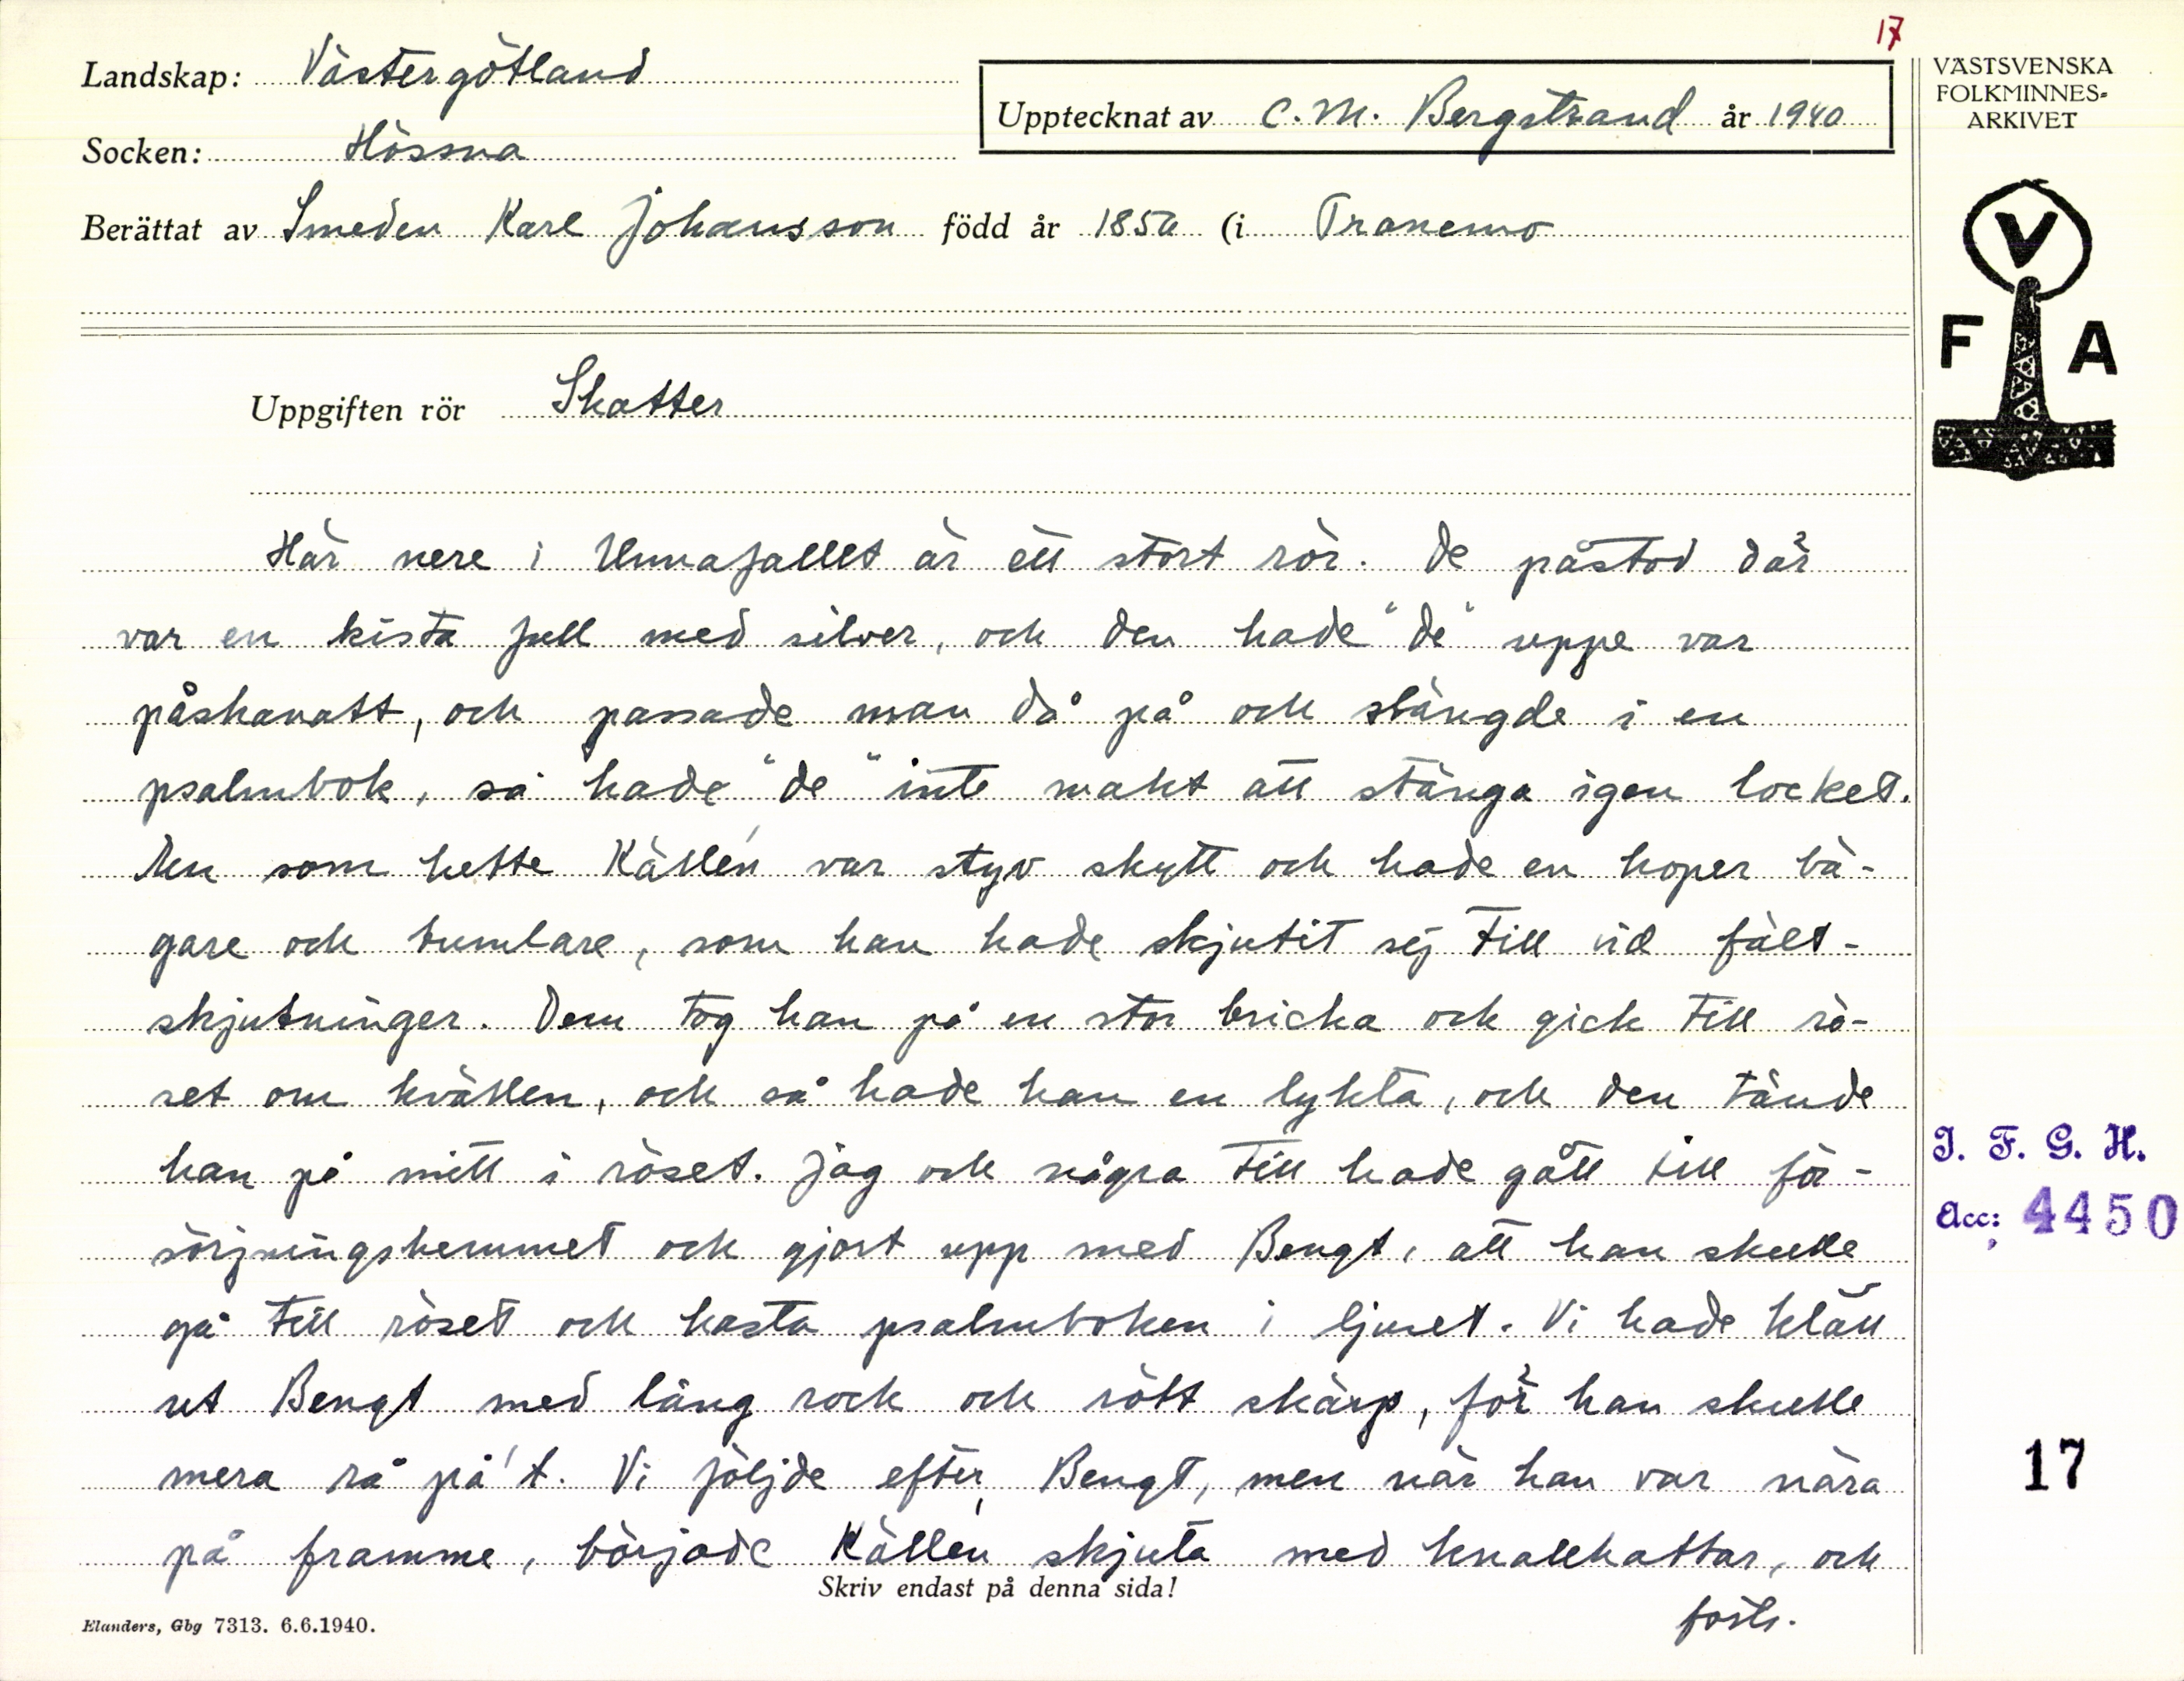 17
Landskap: Västergötland
Socken: Hössna
Upptecknat av C. M. Bergstrand år 1940
Berättat av Smeden Karl Johansson född år 1850 (i Tranemo
VÄSTSVENSKA
FOLKMINNES-
ARKIVET
V
F A
Uppgiften rör Skatter
Här nere i Unnafallet är ett stort rör. De påstod där
var en kista full med silver, och den hade "de" uppe var
påskanatt, och passade man då på och slängde i en
psalmbok, så hade "de" inte makt att stänga igen locket.
En som hette Källén var styv skytt och hade en hoper bä-
gare och tumlare, som han hade skjutit sej till vid fält-
skjutninger. Dem tog han på en stor bricka och gick till rö-
set om kvällen, och så hade han en lykta, och den tände
han på mitt i röset. Jag och några till hade gått till för-
sörjningshemmet och gjort upp med Bengt, att han skulle
gå till röset och kasta psalmboken i ljuset. Vi hade klätt
ut Bengt med lång rock och rött skärp, för han skulle
mera rå på't. Vi följde efter Bengt, men när han var nära
på framme, började Källén skjuta med knallhattar, och
Skriv endast på denna sida!
forts.
Elanders, Gbg 7313. 6.6.1940.
I. F. G. H.
Acc: 4450
17